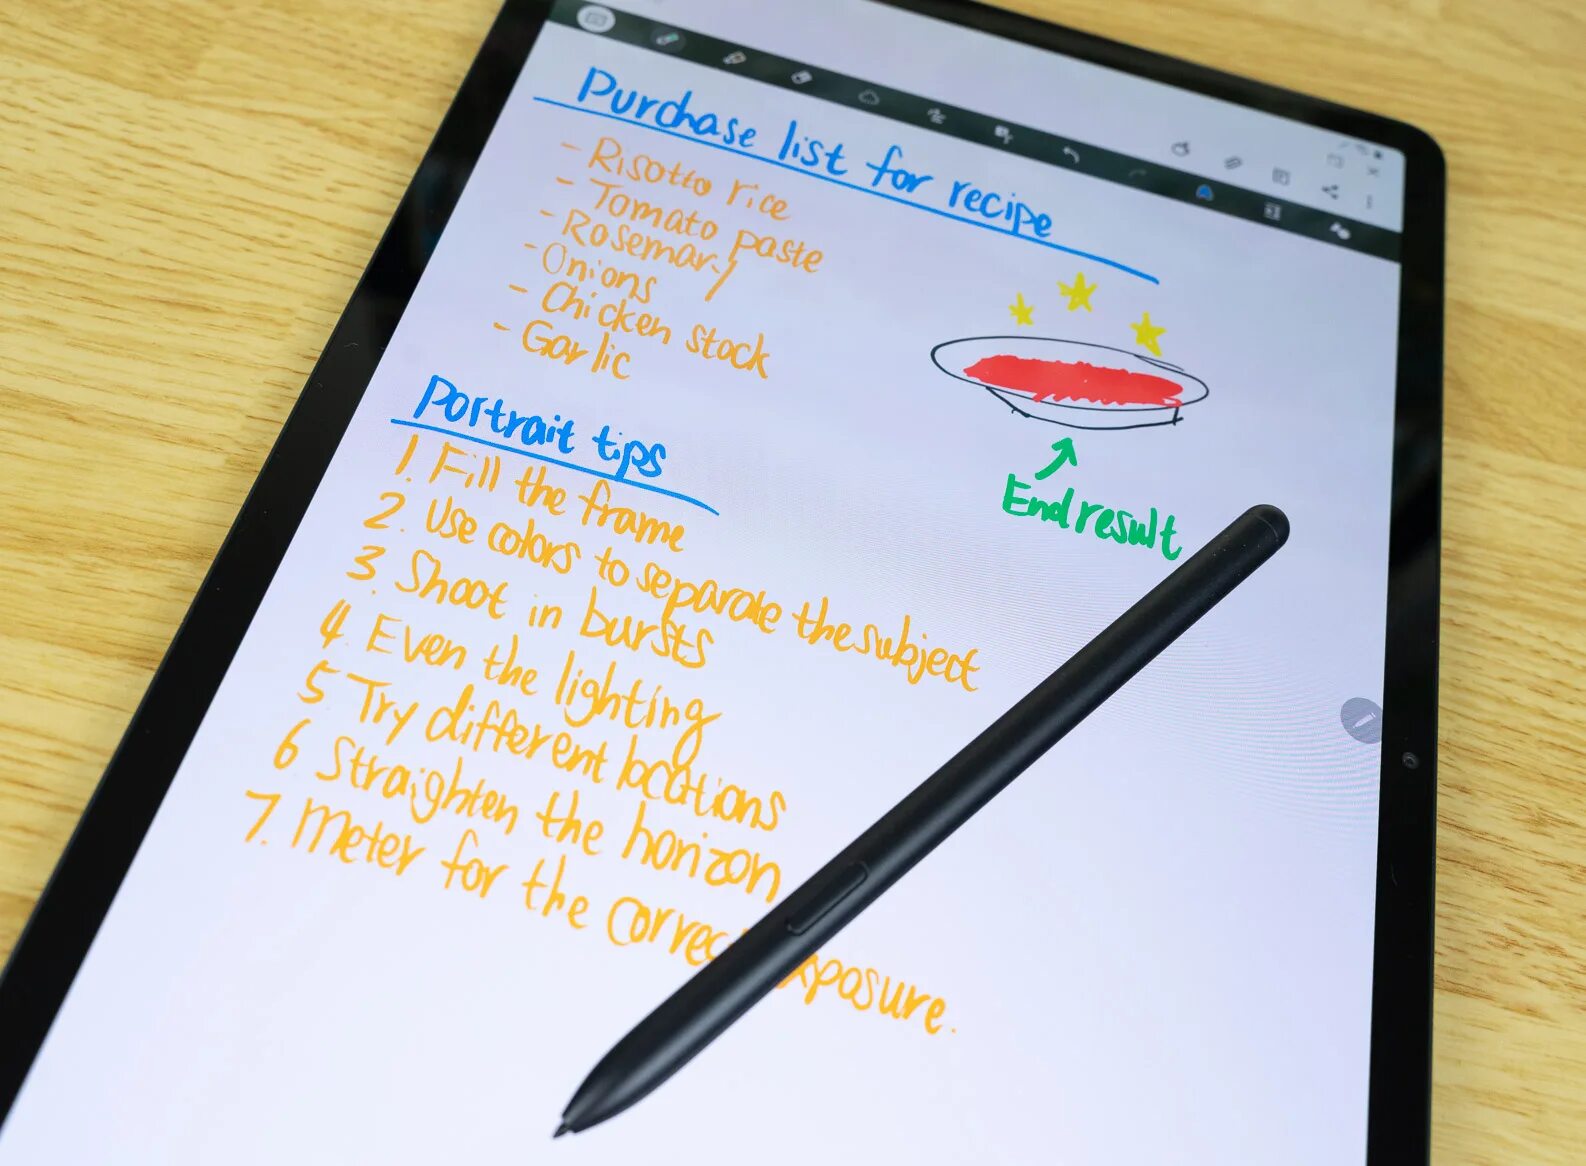 Purchase list for recipe
- Risotto rice
- Tomato paste
- Rosemary
- Onions
- Chicken stock
- Garlic
End result
Portrait tips
1. Fill the frame
2. Use colors to separate the subject
3. Shoot in bursts
4. Even the lighting
5 Try different locations
6 Straighten the horizon
7. Meter for the correc xposure.